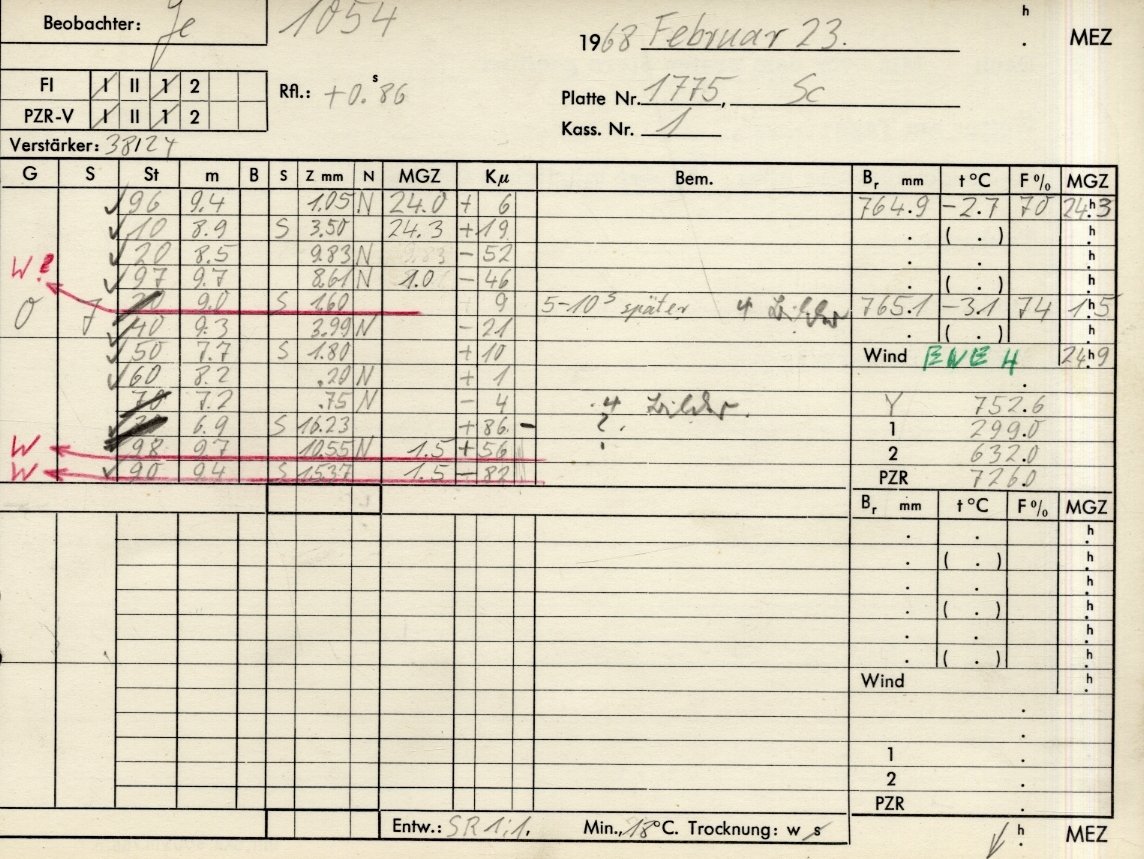 Beobachter: Je 1054
1968 Februar 23. h . MEZ
FI I II 1 2
PZR-V I II 1 2
Rfl.: +0.s86
Platte Nr. 1775, Sc
Kass. Nr. 1
Verstärker: 38/24
G S St m B S Z mm N MGZ Kμ Bem. Br mm t °C F % MGZ
96 9.4 1.05 N 24.0 + 6 764.9 -2.7 70 24.h3
10 8.9 S 3.50 24.3 +19 . ( . ) .h
20 8.5 9.83 N - 52 . .h
W? 97 9.7 8.61 N 1.0 - 46 . ( . ) .h
0 7 9.0 S 1.60 9 5-10s später 4 Bilder 765.1 -3.1 74 1.h5
40 9.3 3.99 N - 21 . ( . ) .h
50 7.7 S 1.80 + 10 Wind ENE 4 24.h9
60 8.2 .20 N + 1 .
70 7.2 .75 N - 4 4 Bilder. Y 752.6
6.9 S 16.23 + 86 - ?. 1 299.0
W 98 9.7 10.55 N 1.5 + 56 2 632.0
W 90 9.4 S 15.37 1.5 - 82 PZR 726.0
Br mm t °C F % MGZ
. . .h
. ( . ) .h
. . .h
. ( . ) .h
. . .h
. ( . ) .h
Wind .h
.
.
1 .
2 .
PZR .
Entw.: SR 1:1. Min., 18°C. Trocknung: w s
h . MEZ